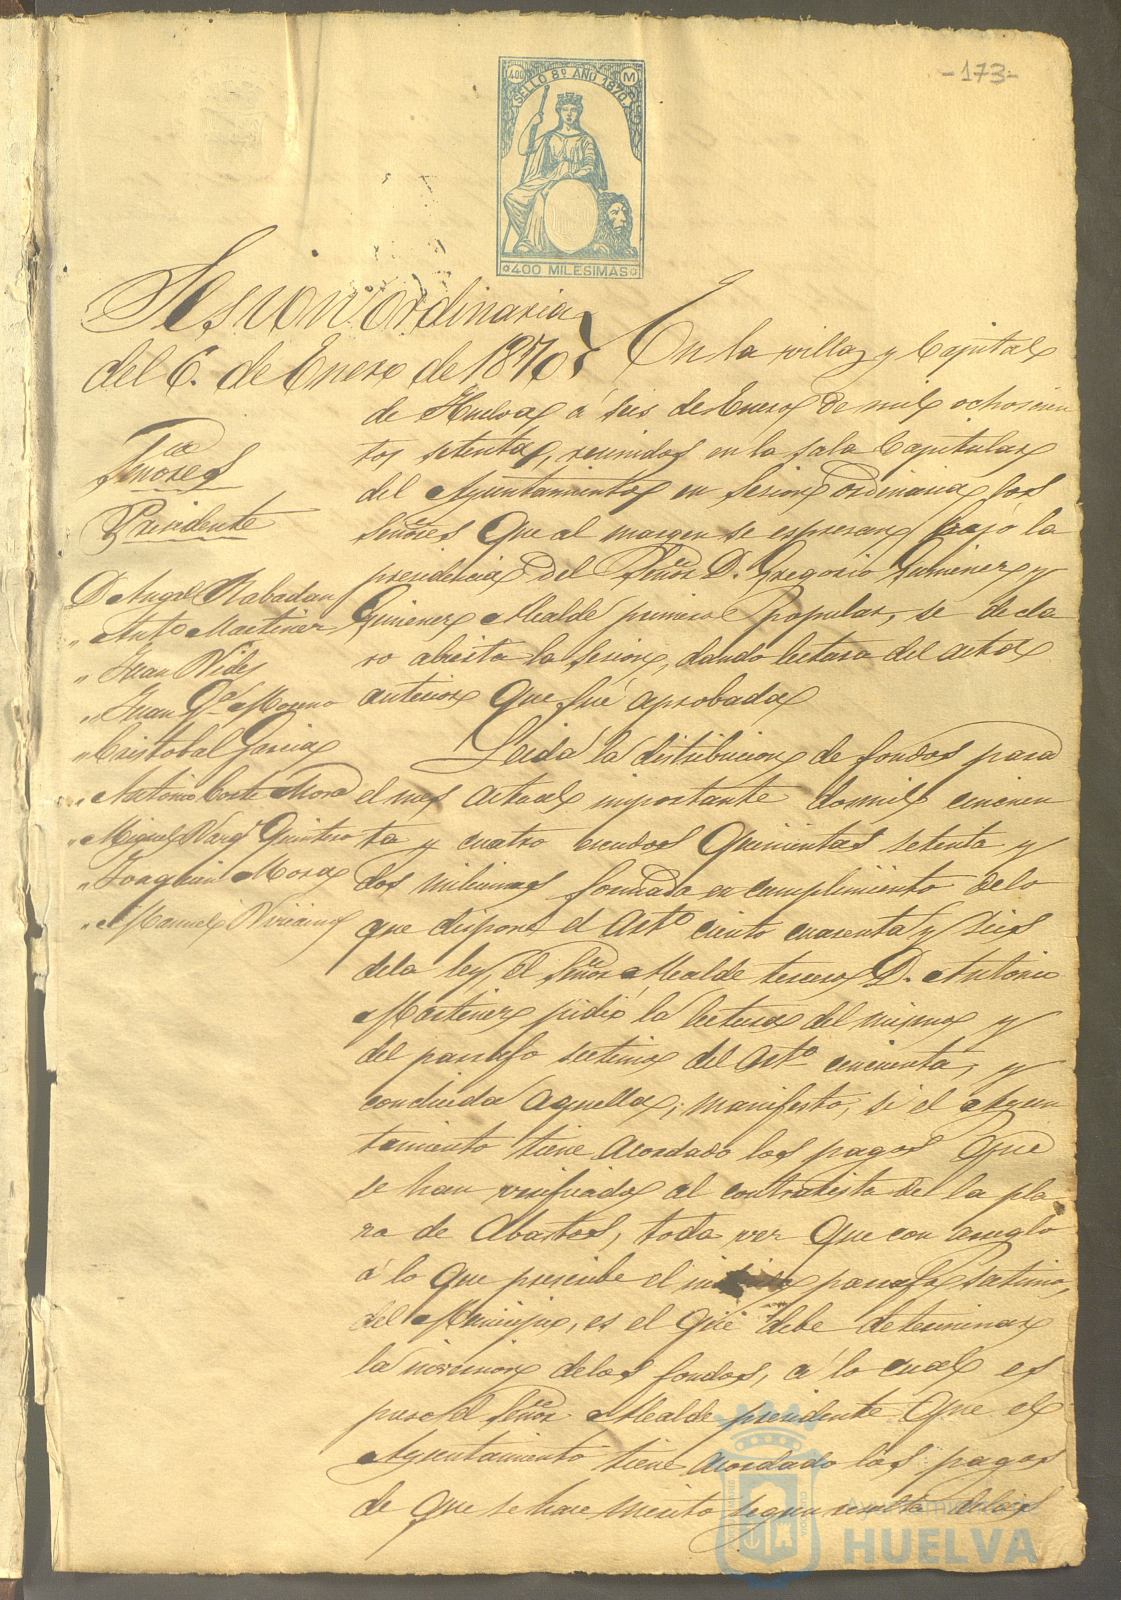 -173-
400 M
SELLO 8º AÑO 1870
400 MILESIMAS
Sesion ordinaria
del 6. de Enero de 1870
Señores
Presidente
D. Angel Rabadan
" Antº Martinez
" Juan
" Juan Moreno
" Cristobal Garcia
" Antonio Corte Mora
" Miguel Quintero
" Joaquin Mora
" Manuel
En la villa y Capital
de Huelva á seis de Enero de mil ochocien
tos setenta, reunidos en la sala Capitular
del Ayuntamiento en sesion ordinaria los
Señores que al margen se espresan bajo la
presidencia del Señor D. Gregorio Gimenez y
Gimenez Alcalde primero popular, se decla
ro abierta la sesion, dando lectura del acta
anterior que fué aprobada
Leida la distribucion de fondos para
el mes actual importante dosmil cincuen
ta y cuatro escudos quinientas setenta y
dos milesimas formada en cumplimiento de lo
que dispone el artº ciento cuarenta y seis
de la ley, el Señor Alcalde tercero D. Antonio
Martinez pidió la lectura del mismo y
del parrafo septimo del artº cincuenta, y
concluida aquella, manifesto, si el Ayun
tamiento tiene acordado los pagos que
se han verificado al contratista de la pla
za de Abastos, toda vez que con arreglo
á lo que prescribe el parrafo septimo,
del Municipio, es el que debe determinar
la inversion de los fondos, á lo cual es
puso el Señor Alcalde presidente que el
Ayuntamiento tiene acordado los pagos
de que se hace merito segun resulta de las
Ayuntamiento de
HUELVA